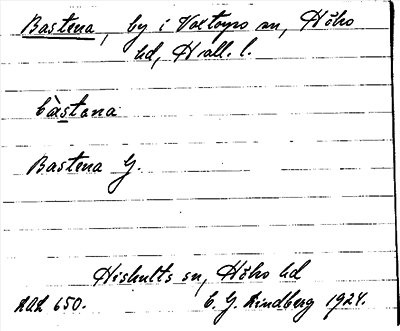 Bastena, by i Voxtorps sn, Höks
hd, Hall. l.
bàstana
Bastena G.
Hishults sn, Höks hd
AUL 650. C. G. Lindberg 1924.